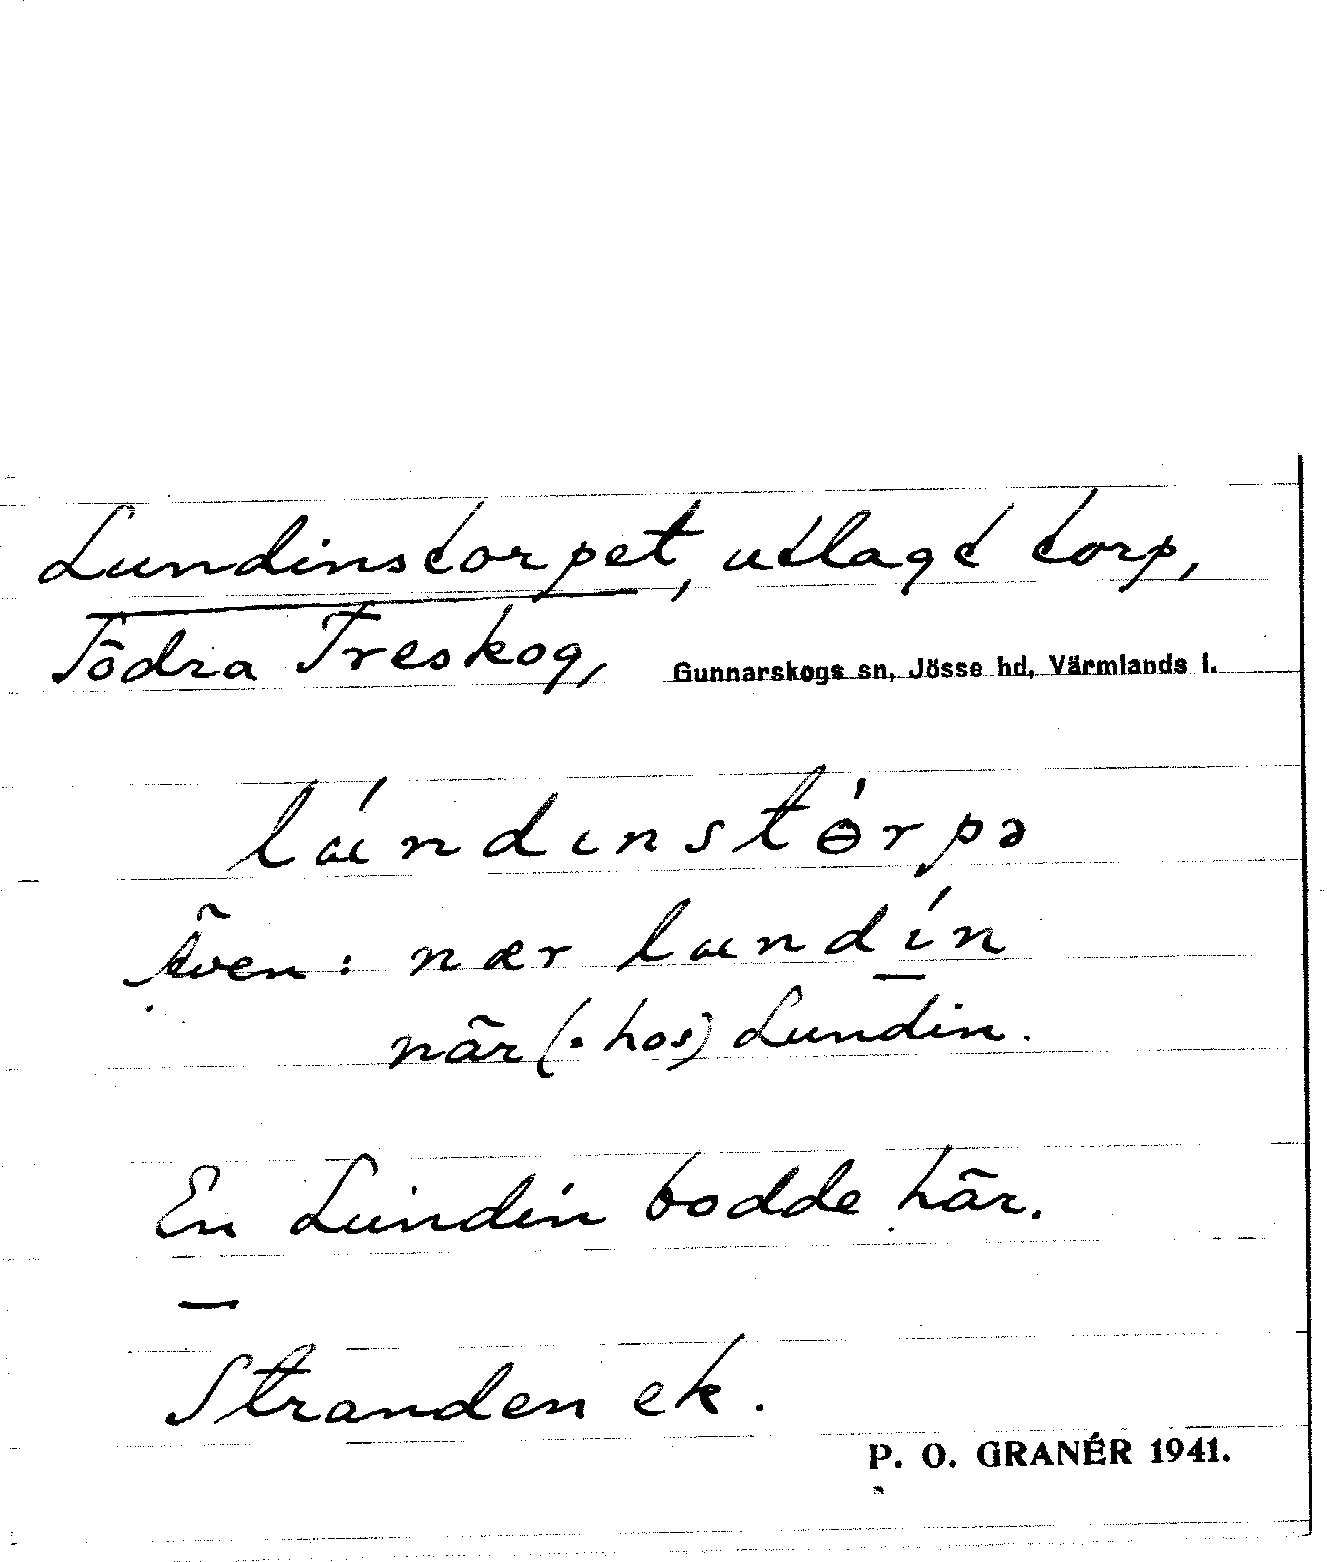 Lundinstorpet, utlagt torp,
Södra Treskog, Gunnarskogs sn, Jösse hd, Värmlands l.
lœ́ndınstɵ́rpə
Även: nær lœndı́n
när (= hos) Lundin.
En Lundin bodde här.
—
Stranden ek.
P. O. GRANÉR 1941.